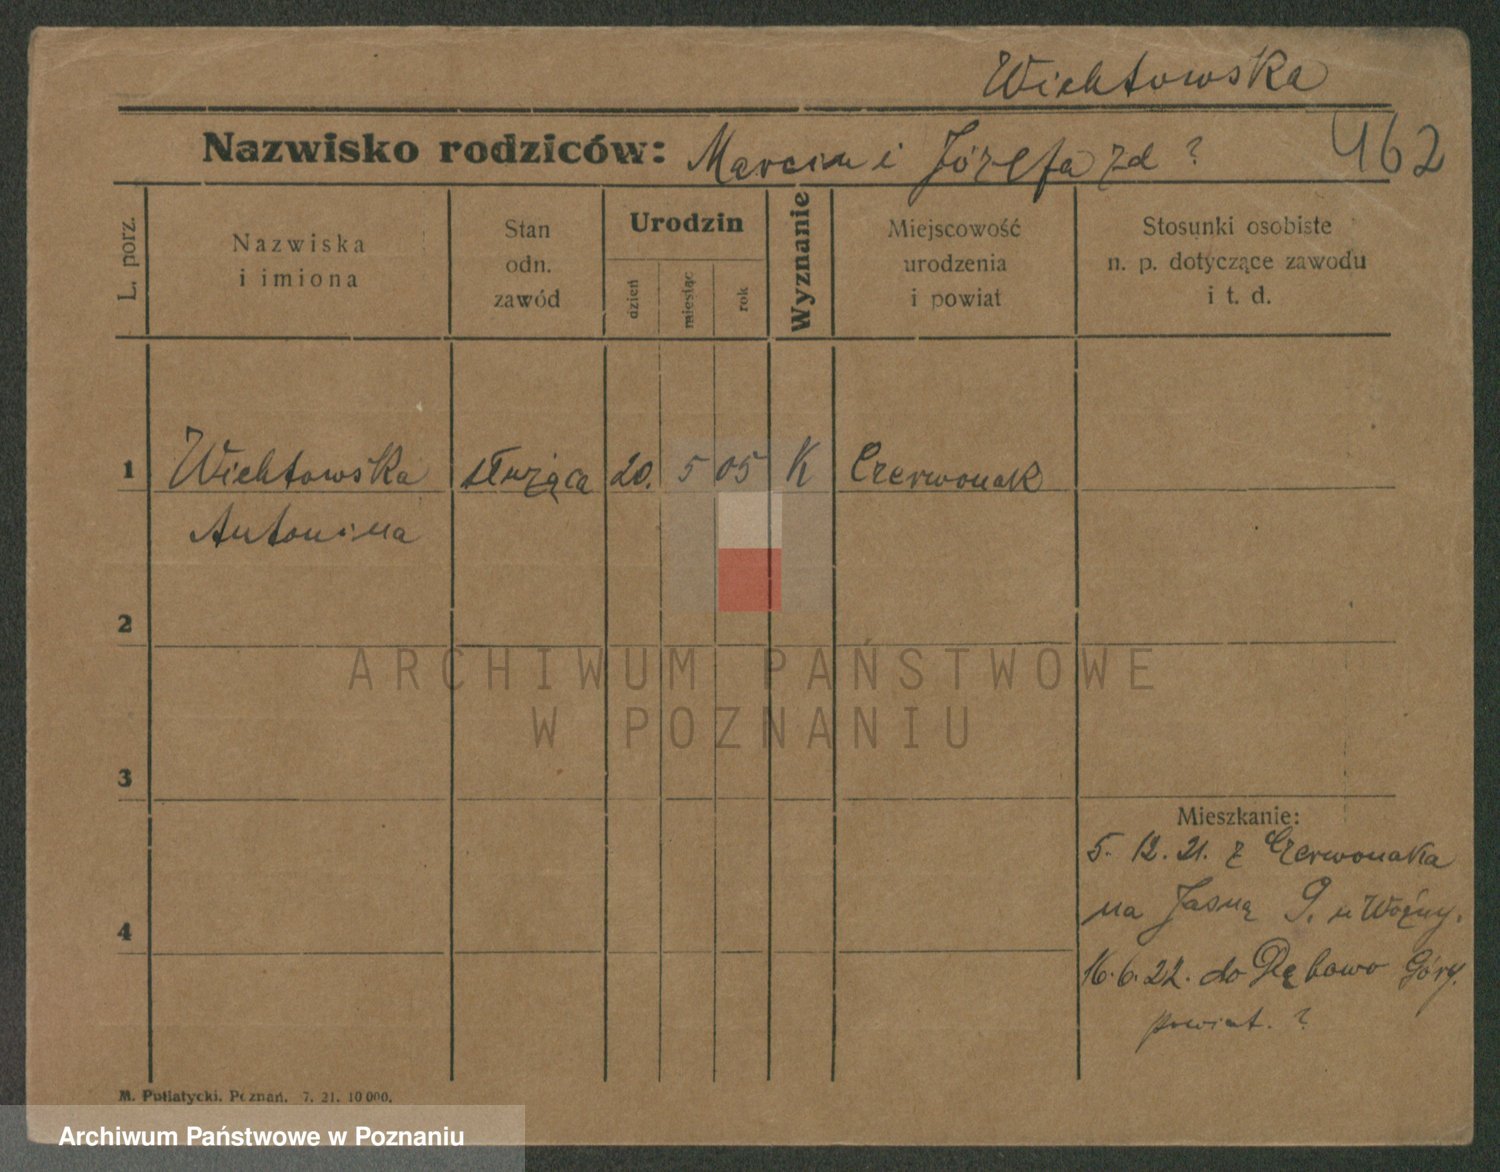 Wichtowska
Nazwisko rodziców: Marcin i Józefa zd ?
462
L. porz.
Nazwiska
i imiona
Stan
odn.
zawód
Urodzin
dzień
miesiąc
rok
Wyznanie
Miejscowość
urodzenia
i powiat
Stosunki osobiste
n. p. dotyczące zawodu
i t. d.
1 Wichtowska służąca 20. 5 05 K Czerwonak
Antonina
2
ARCHIWUM PAŃSTWOWE
W POZNANIU
3
Mieszkanie:
5. 12. 21. z Czerwonaka
na Jasną 9. u Woźny.
4
16. 6. 22. do Dębowo Góry.
powiat. ?
M. Putiatycki. Poznań. 7. 21. 10000.
Archiwum Państwowe w Poznaniu